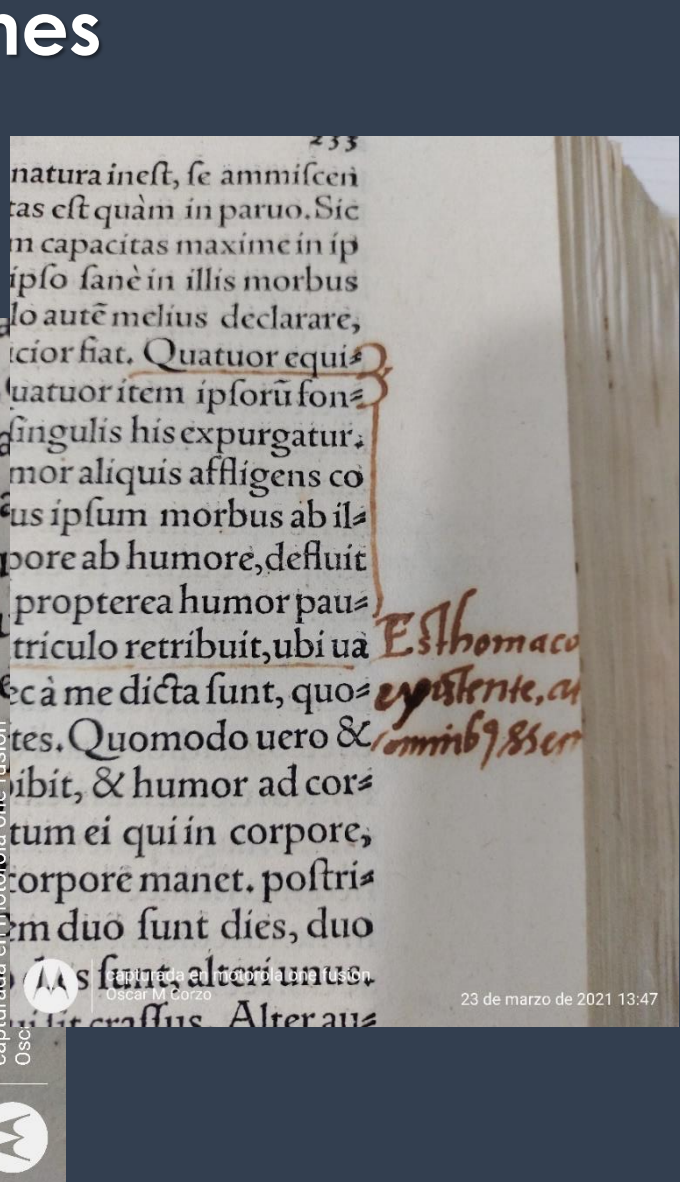 nes
233
natura inest, se ammiscen
tas est quàm in paruo. Sic
m capacitas maxime in ip
ipso sanè in illis morbus
lo autē melius declarare,
icior fiat. Quatuor equi⸗
uatuor item ipsorū fon⸗
singulis his expurgatur.
mor aliquis affligens co
us ipsum morbus ab il⸗
pore ab humore, defluit
propterea humor pau⸗
triculo retribuit, ubi ua
Esthomaco
ec à me dicta sunt, quo⸗
existente,
tes. Quomodo uero &
ibit, & humor ad cor⸗
tum ei qui in corpore,
corpore manet. postri⸗
em duo sunt dies, duo
s sunt, alteri unus.
crassus. Alter au⸗
capturada en motorola one fusion
Oscar M Corzo
23 de marzo de 2021 13:47
capturada en motorola one fusion
Osc